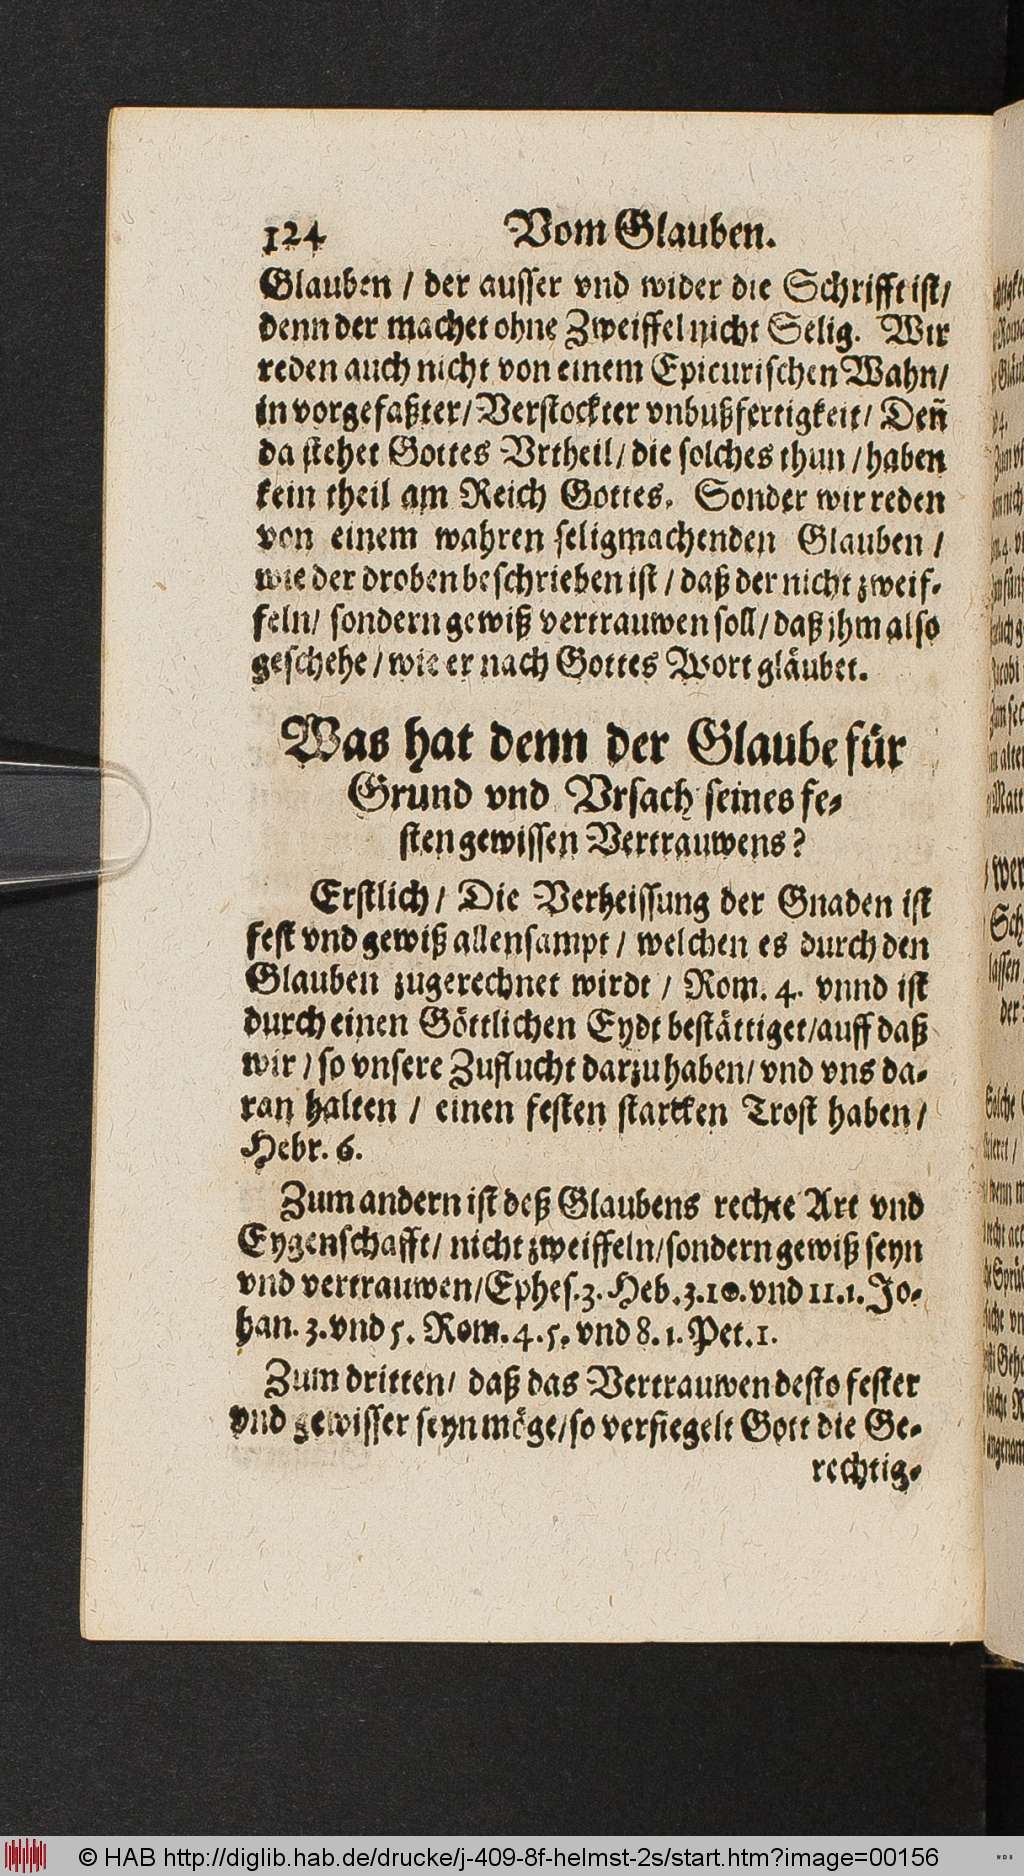 124 Vom Glauben.
Glauben / der ausser vnd wider die Schrifft ist/
denn der machet ohne Zweiffel nicht Selig. Wir
reden auch nicht von einem Epicurischen Wahn/
in vorgefaßter/ Verstockter vnbußfertigkeit/ Den̄
da stehet Gottes Vrtheil/ die solches thun / haben
kein theil am Reich Gottes. Sonder wir reden
von einem wahren seligmachenden Glauben /
wie der droben beschrieben ist / daß der nicht zweif-
feln/ sondern gewiß vertrauwen soll/ daß jhm also
geschehe / wie er nach Gottes Wort gläubet.
Was hat denn der Glaube für
Grund vnd Vrsach seines fe-
sten gewissen Vertrauwens?
Erstlich / Die Verheissung der Gnaden ist
fest vnd gewiß allensampt / welchen es durch den
Glauben zugerechnet wirdt / Rom. 4. vnnd ist
durch einen Göttlichen Eydt bestättiget/auff daß
wir / so vnsere Zuflucht darzu haben/ vnd vns da-
ran halten / einen festen starcken Trost haben/
Hebr. 6.
Zum andern ist deß Glaubens rechte Art vnd
Eygenschafft/ nicht zweiffeln/sondern gewiß seyn
vnd vertrauwen/Ephes.3. Heb.3.10.vnd 11.1. Jo-
han. 3.vnd 5. Rom. 4. 5. vnd 8. 1. Pet.1.
Zum dritten/ daß das Vertrauwen desto fester
vnd gewisser seyn möge/so versiegelt Gott die Ge-
rechtig-
© HAB http://diglib.hab.de/drucke/j-409-8f-helmst-2s/start.htm?image=00156